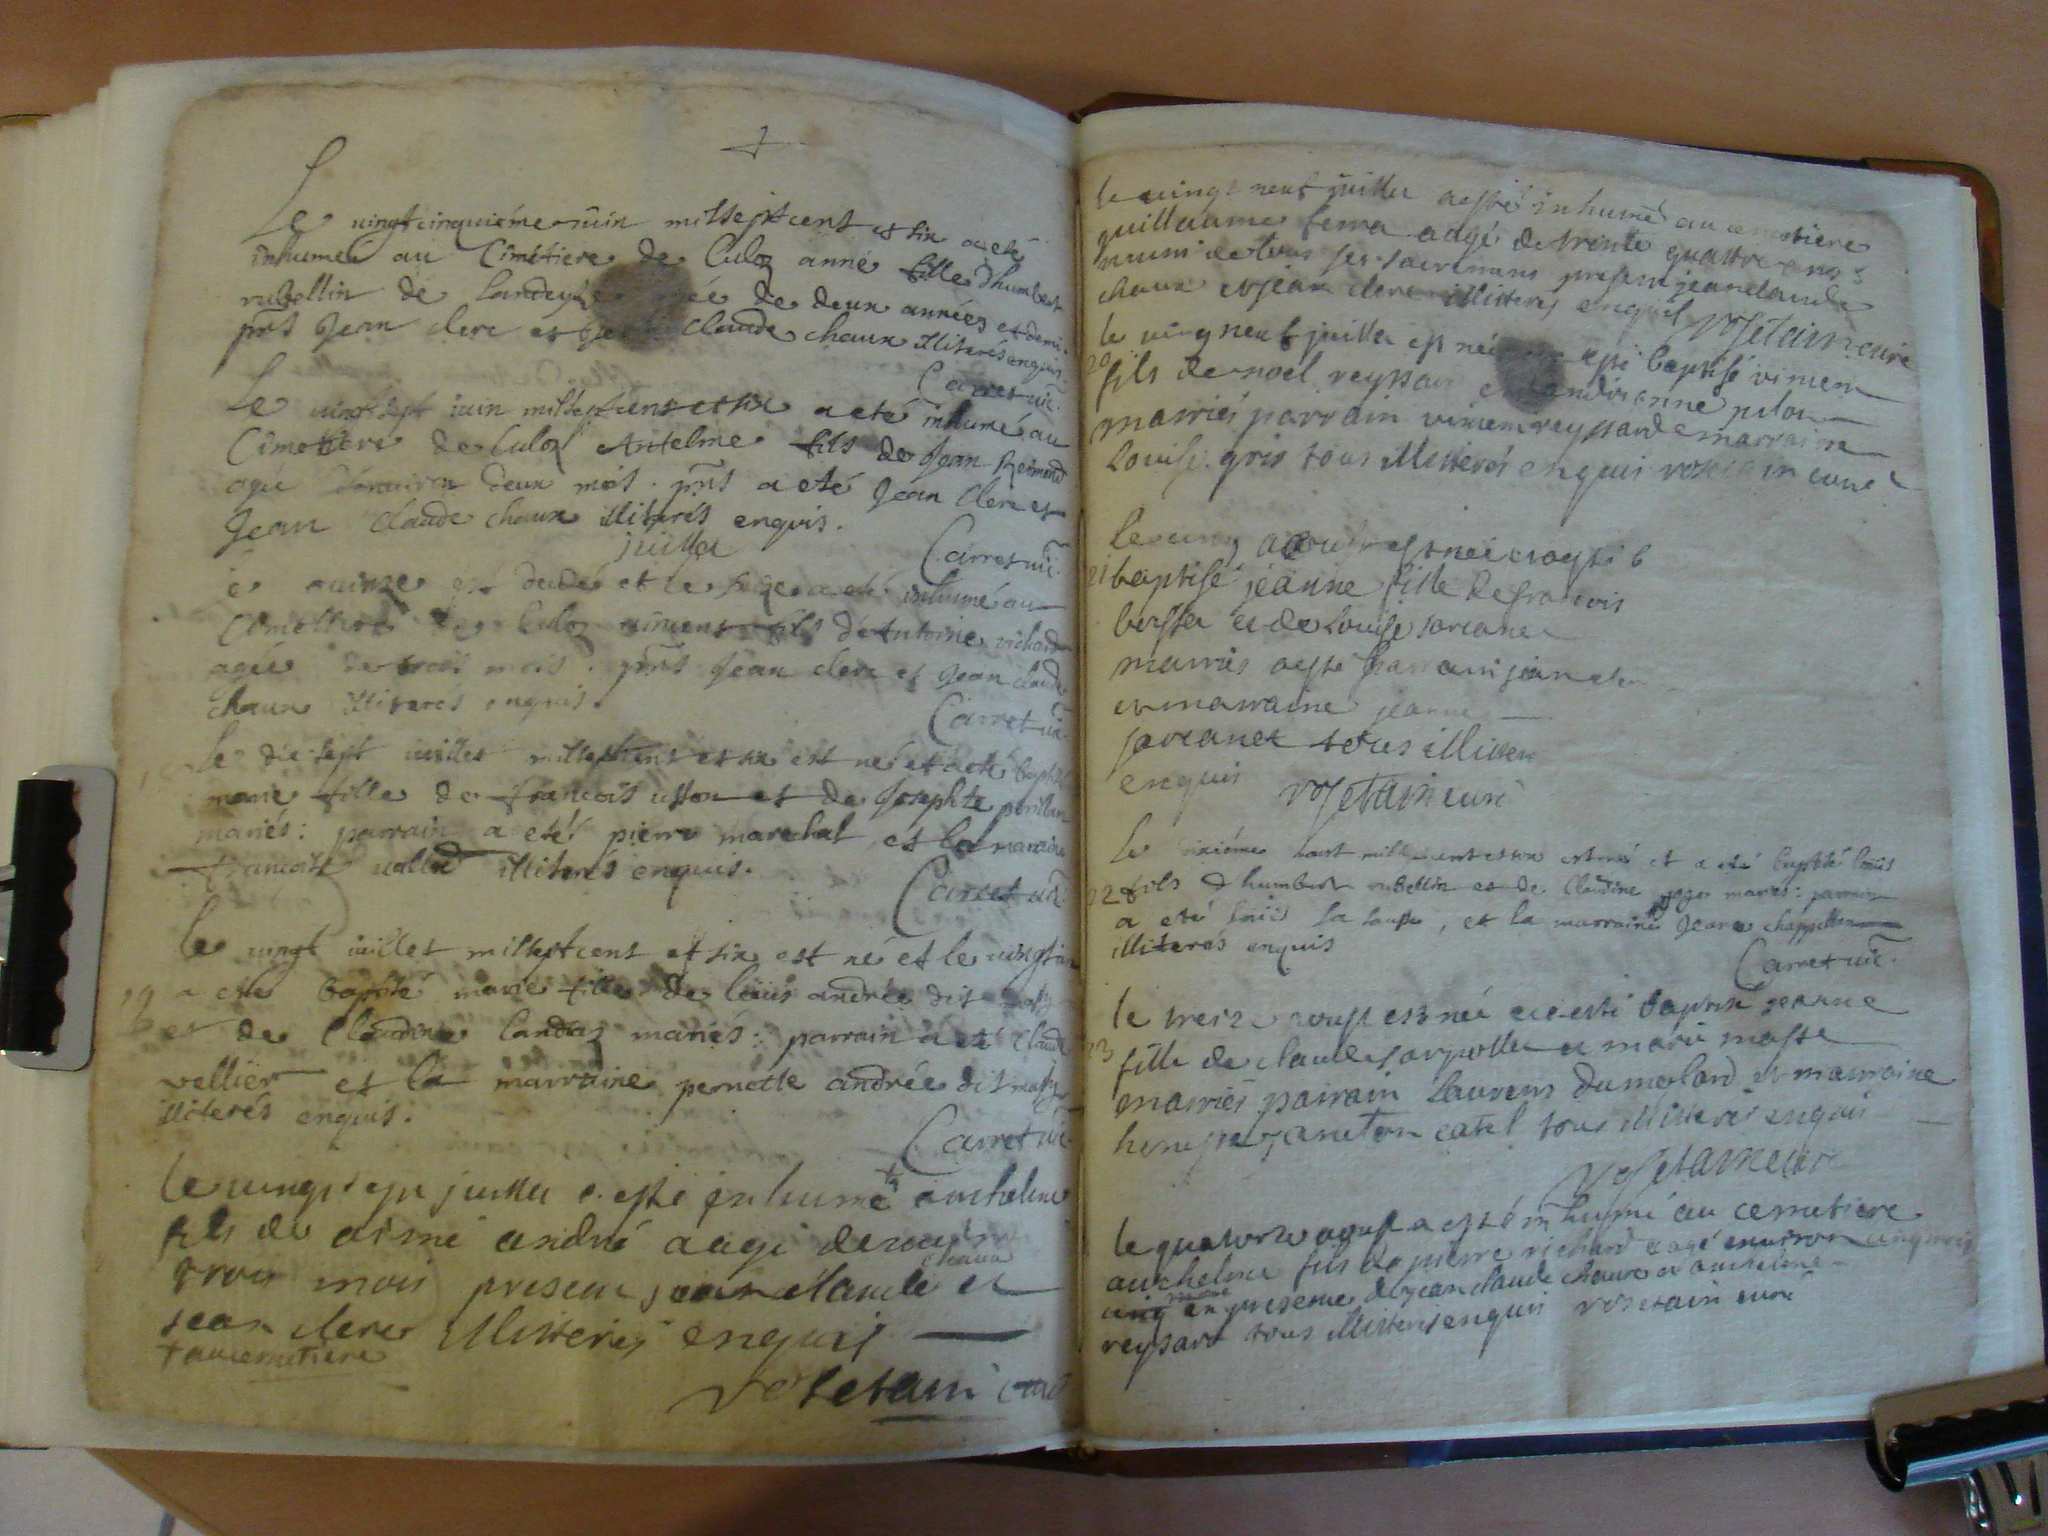 Le vingtcinquiéme iuin millseptcent et six a eté
inhumeé au Cimétiere de Culoz anne fille d'humbert
rubellin de landey de deux années et demi.
pnts Jean clerc et Jean Claude chaux illiterés enquis.
Carret vic.
Le vingtsept iuin millseptcent et six a eté inhumé au
Cimettiere de Culoz Antelme fils de Jean Reimond
agé d'environ deux mois. pnts a eté Jean Clerc et
Jean Claude chaux illiterés enquis.
Carret vic.
juillet
Le quinze est decedé et le seize a eté inhumé au
Cimettiere de Culoz vincent fils d'Antoine richard
agée de trois mois. pnts Jean clerc et Jean claude
chaux illiterés enquis.
Carret vic.
Le dix sept iuillet millseptcent et six est né et a eté baptisé
marie fille de francois et de Josephte
mariés: parrain a eté pierre marechal et la marraine
francoise illiterés enquis.
Carret vic.
Le vingt iuillet millseptcent et six est né et le vingtun
19 a eté baptisé marie fille de loüis andrée dit
et de Claudine landaz mariés: parrain a eté Claude
vellier et la marraine pernette andrée dit
illiterés enquis.
Carret vic.
le vingt sept juillet a esté inhumé + anthelme
fils de aimé andré aagé denviron
trois mois presens jean claude chaux et
jean clerc illitteres enquis
+ au cemetiere
Vosetain curé
le vingt neuf juillet a esté inhumé au cemetiere
guillaume ferra aagé de trente quattre ans
muni de tous ses sacremans presens jean claude
chaux et jean clerc illitteres enquis Vosetain curé
le vingneuf juillet est né esté baptisé vincent
20 fils de noel reyssard et andrianne pilou
marriés parrain vincent reyssard e marraine
Louise gris tous illitterés enquis vosetain curé
le cinq aoust est neé et a esté b
21 baptisé jeanne fille de francois
et de Louise
marriés a esté parrain jean
et marraine jeanne
tous illitteres
enquis Vosetain curé
le sixiéme aoust mill sept cent et six est né et a eté baptisé loüis
22 fils d'humbert rubellin et de Claudine mariés: parrain
a eté loüis la , et la marraine Jeane
illiterés enquis
Carret vic.
le treize aoust est née et a esté baptisé jeanne
23 fille de claude et marie masse
marriés parrain Laurens dumolard et marraine
catel tous illitterés enquis
Vosetain curé
le quatorze aoust a esté inhumé au cemetiere
anthelme fils de pierre richard aagé environ cinq mois
en presence de jean claude chaux et anthelme
reysard tous illitteris enquis vosetain curé